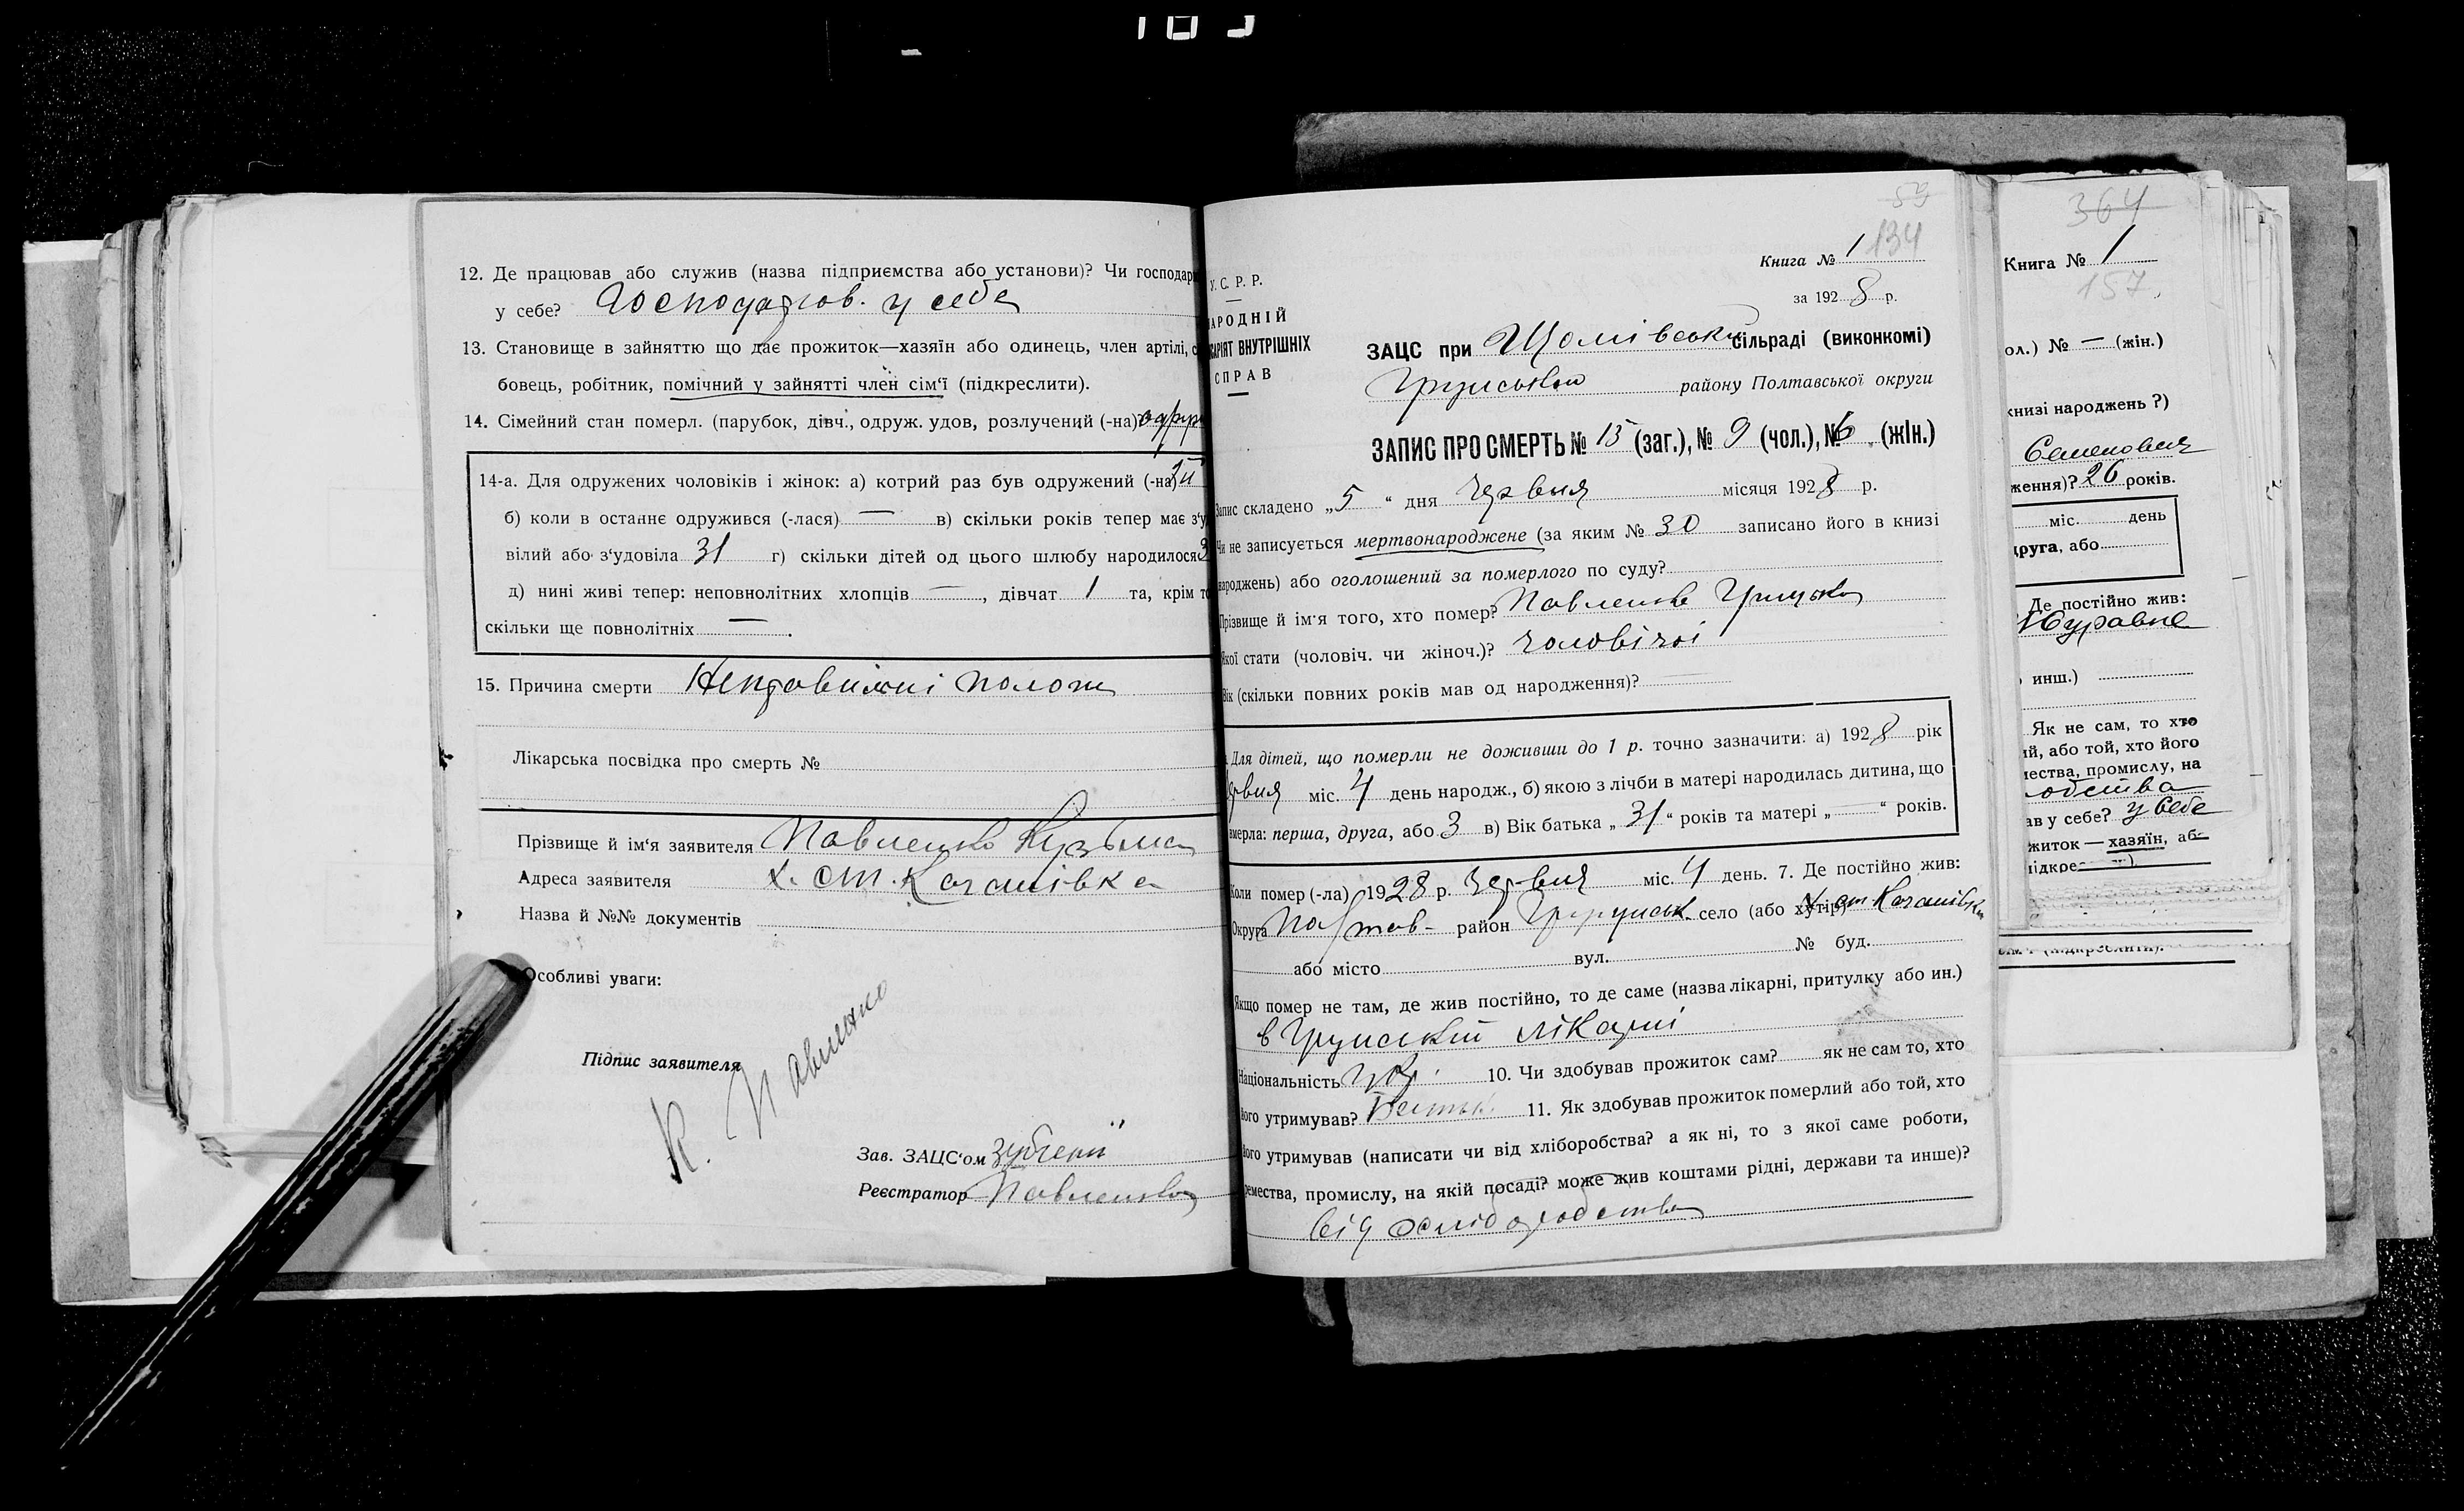 12. Де працював або служив (назва підприємства або установи)? Чи господар
у себе? Господарюв. у себе
13. Становище в зайняттю що дає прожиток—хазяїн або одинець, член артілі, с
бовець, робітник, помічний у зайнятті член сім'ї (підкреслити).
14. Сімейний стан померл. (парубок, дівч., одруж. удов, розлучений (-на)?
14-а. Для одружених чоловіків і жінок: а) котрий раз був одружений (-на)
б) коли в останнє одружився (-лася) — в) скільки років тепер має з'у
вілий або з'удовіла 31 г) скільки дітей од цього шлюбу народилося 3
д) нині живі тепер: неповнолітних хлопців — , дівчат 1 та, крім то
скільки ще повнолітніх — .
15. Причина смерти
Лікарська посвідка про смерть №
Прізвище й ім'я заявителя Павленко Кузьма
Адреса заявителя х. ст. Качанівка
Назва й №№ документів
Особливі уваги:
Підпис заявителя К. Павленко
Зав. ЗАЦС'ом
Реєстратор Павленко
59
Книга № 1 134
за 1928 р.
У. С. Р. Р.
НАРОДНІЙ
АРІЯТ ВНУТРІШНІХ
СПРАВ
ЗАЦС при сільраді (виконкомі)
Грунським району Полтавської округи
ЗАПИС ПРО СМЕРТЬ № 15 (заг.), № 9 (чол.), № 6 (жін.)
Запис складено „5“ дня червня місяця 1928 р.
Чи не записується мертвонароджене (за яким № 30 записано його в книзі
народжень) або оголошений за померлого по суду?
Прізвище й ім'я того, хто помер? Павленко Грицько
Якої стати (чоловіч. чи жіноч.)? чоловічої
Вік (скільки повних років мав од народження)? —
Для дітей, що померли не доживши до 1 р. точно зазначити: а) 1928 рік
червня міс. 4 день народж., б) якою з лічби в матері народилась дитина, що
вмерла: перша, друга, або 3 в) Вік батька „31“ років та матері „—“ років.
Коли помер (-ла) 1928 р. червня міс. 4 день. 7. Де постійно жив:
Округа Полтав- район Грунськ. село (або хутір) х. ст. Качанівка
або місто вул. № буд.
Якщо помер не там, де жив постійно, то де саме (назва лікарні, притулку або ин.)
в Грунській лікарні
Національність укр. 10. Чи здобував прожиток сам? як не сам то, хто
його утримував? Батьк. 11. Як здобував прожиток померлий або той, хто
його утримував (написати чи від хліборобства? а як ні, то з якої саме роботи,
ремества, промислу, на якій посаді? може жив коштами рідні, держави та инше)?
від хліборобства
364
Книга № 1
157.
ол.) № — (жін.)
книзі народжень ?)
Семенович
ження)? 26 років.
міс. день
друга, або
Де постійно жив:
Журавне
инш.)
Як не сам, то хто
ий, або той, хто його
чества, промислу, на
ав у себе? у себе
житок — хазяїн, аб
ідкре